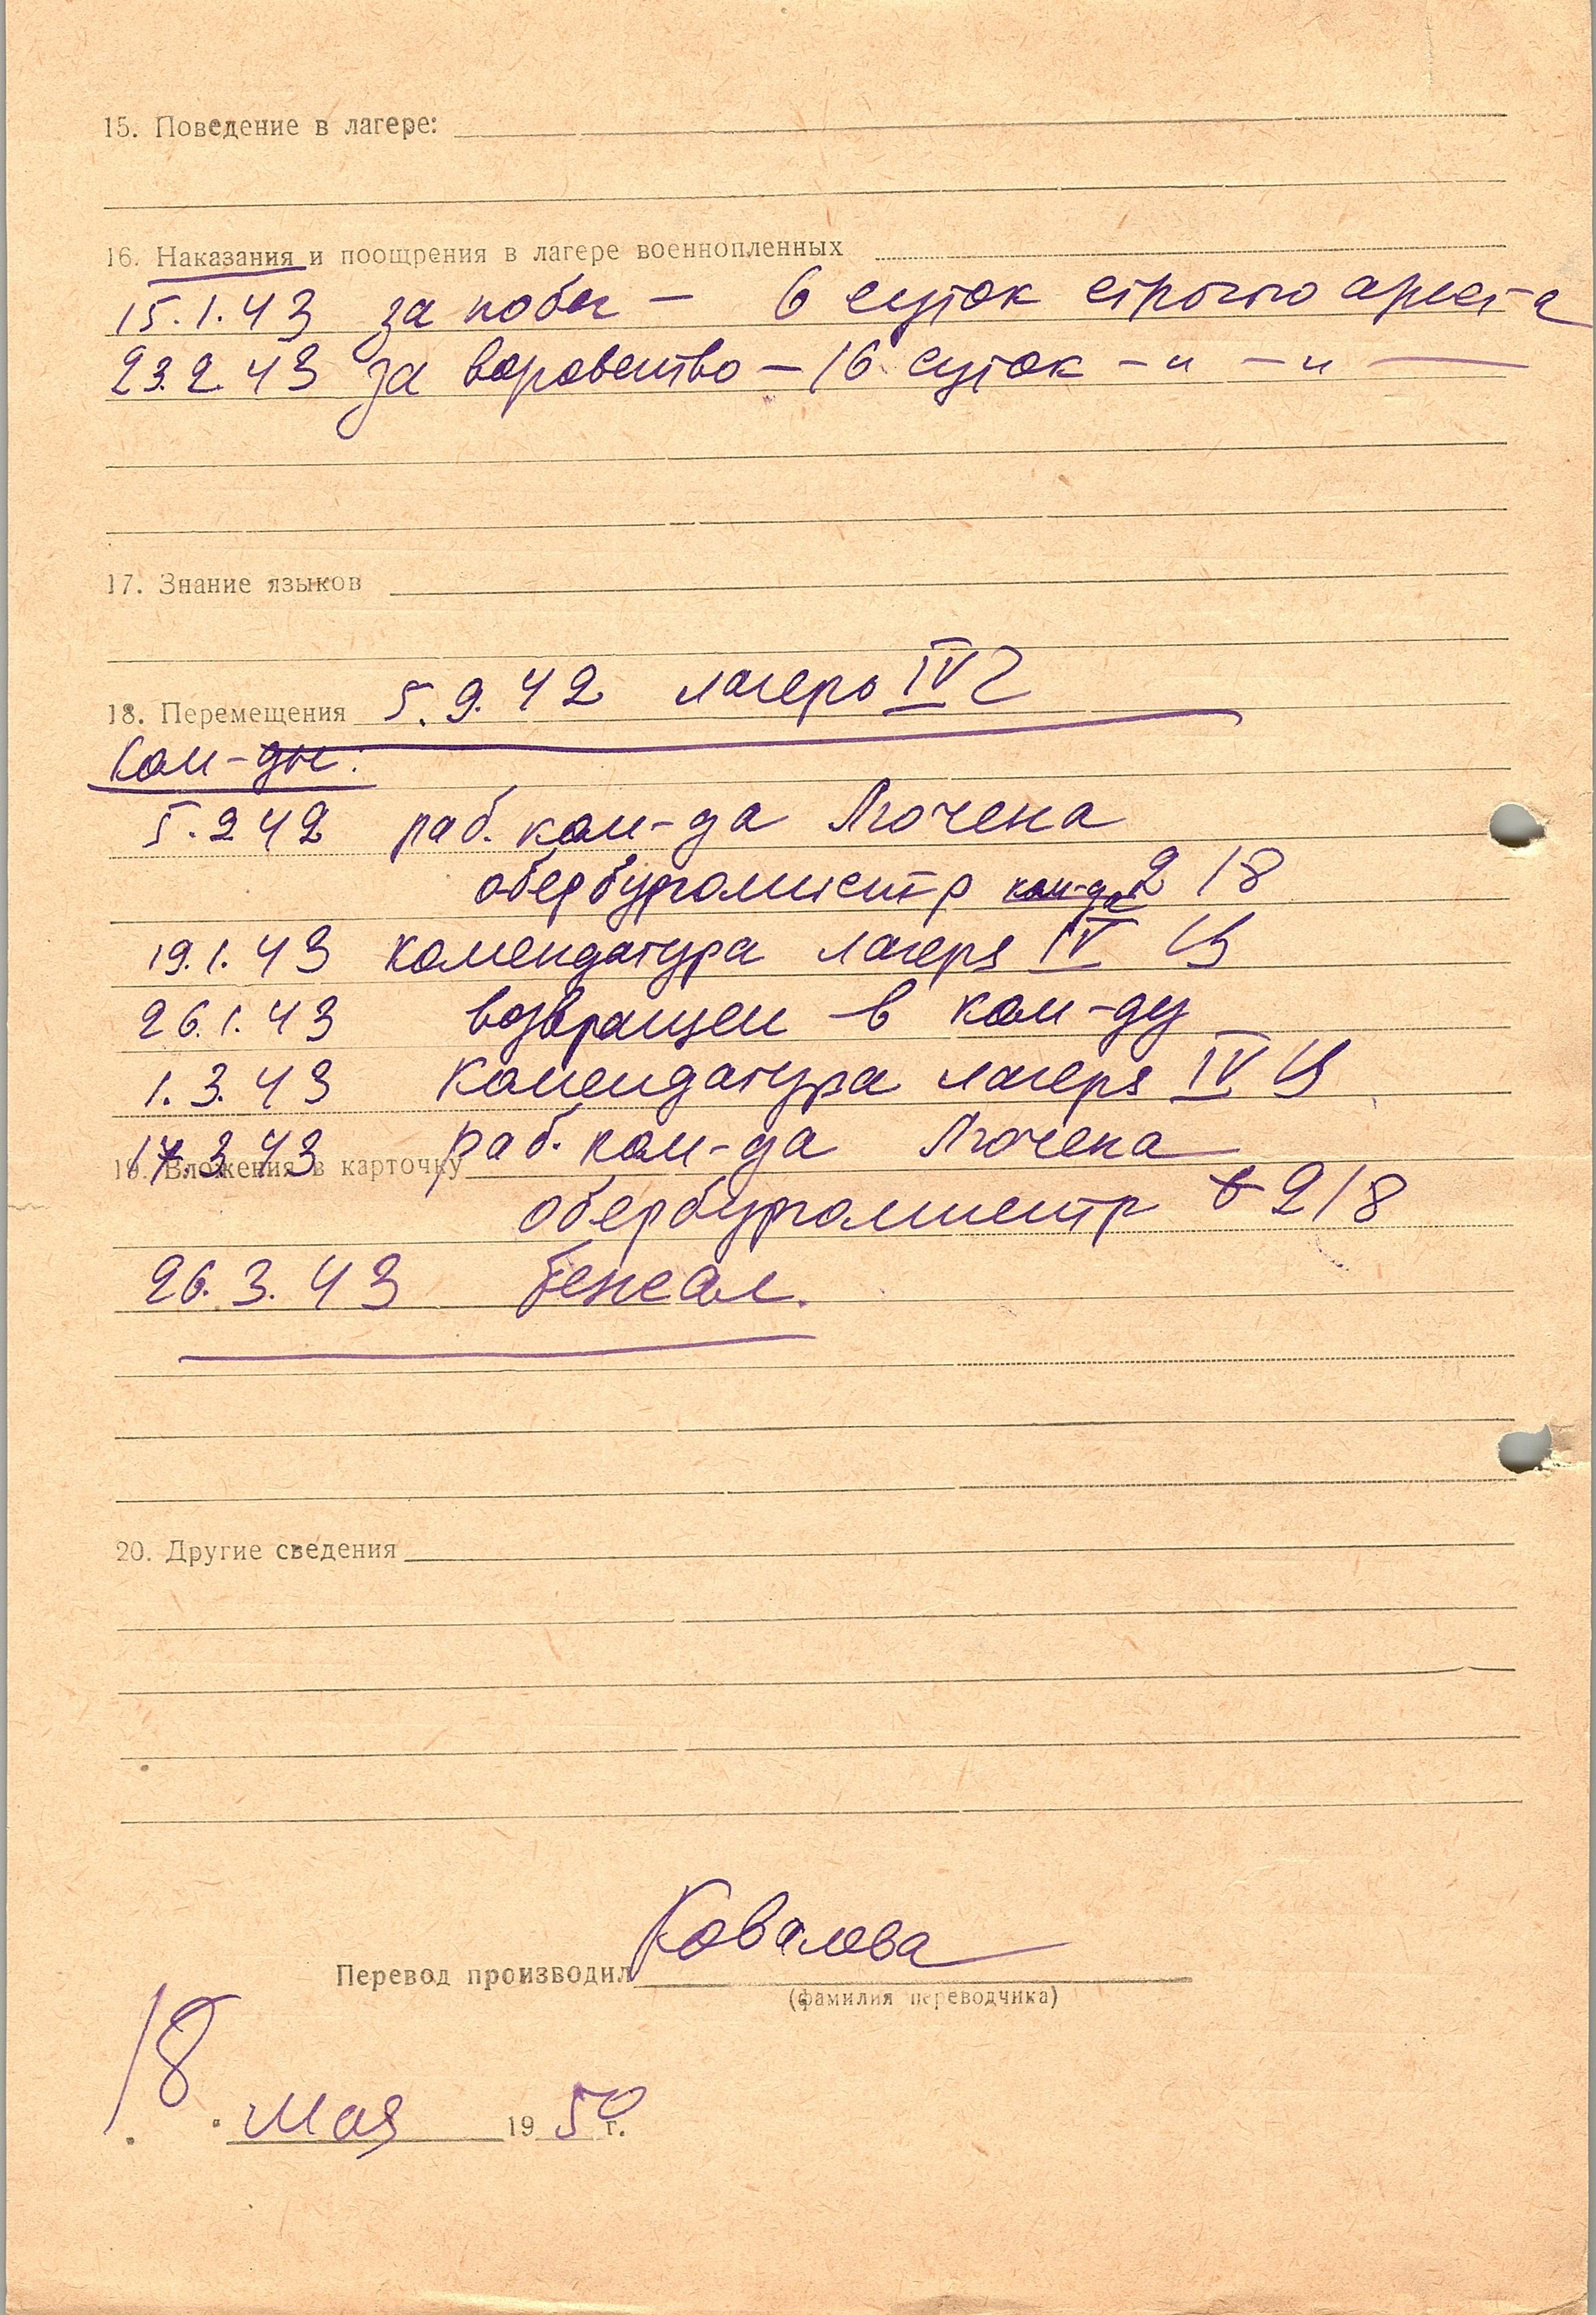 15. Поведение в лагере:
16. Наказания и поощрения в лагере военнопленных
15.1.43 за побег – 6 суток строгого ареста
23.2.43 за воровство – 16 суток – „ – „ –
17. Знание языков
18. Перемещения 5.9.42 лагерь IV
Ком-ды:
5.2 42 раб. ком-да Лючена
обербургомистр ком-да 218
19.1.43 комендатура лагеря IV Ц
26.1.43 возвращен в ком-ду
1.3.43 Комендатура лагеря IV Ц
17.3.43 раб. ком-да Лючена
19. Вложения в карточку
обербургомистр 218
26.3.43 бежал.
20. Другие сведения
Перевод производил Ковалова
(фамилия переводчика)
18 мая 1950 г.